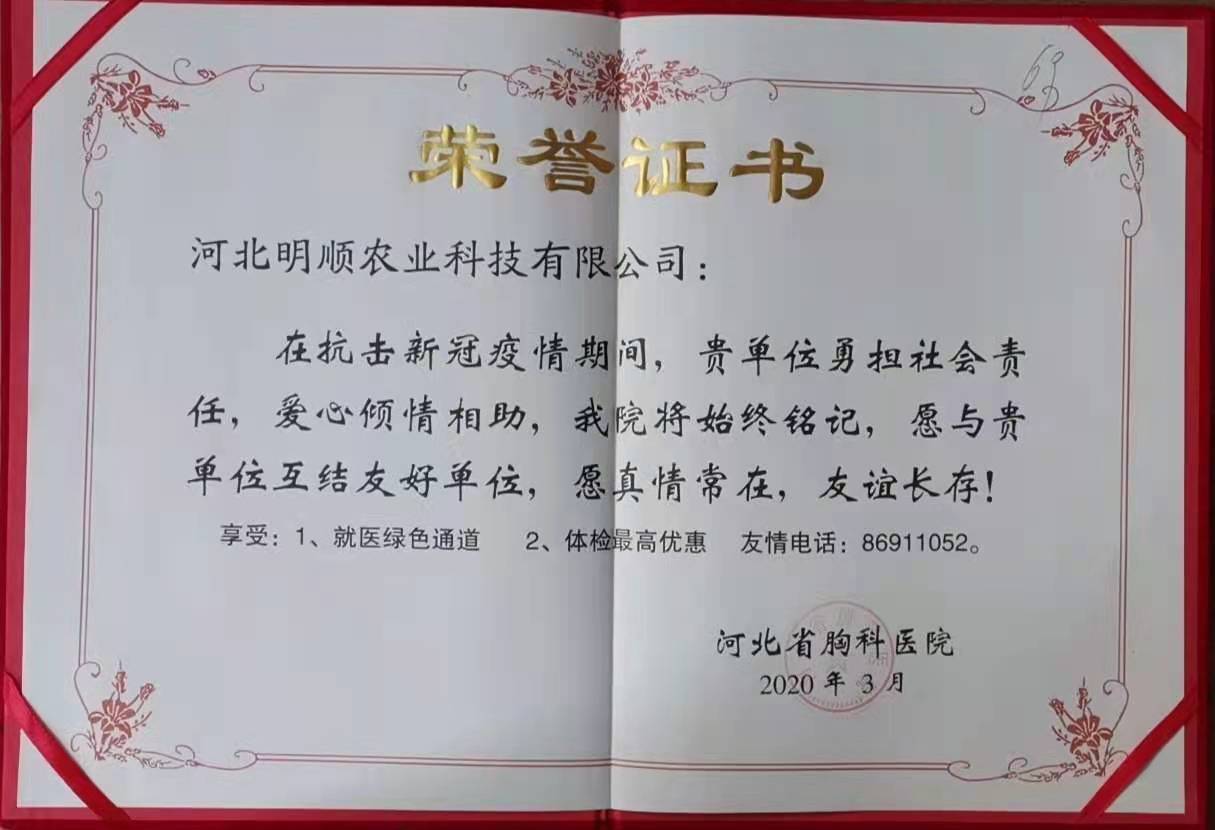 63
荣誉证书
河北明顺农业科技有限公司：
在抗击新冠疫情期间，贵单位勇担社会责
任，爱心倾情相助，我院将始终铭记，愿与贵
单位互结友好单位，愿真情常在，友谊长存！
享受：1、就医绿色通道 2、体检最高优惠 友情电话：86911052。
河北省胸科医院
2020 年 3 月